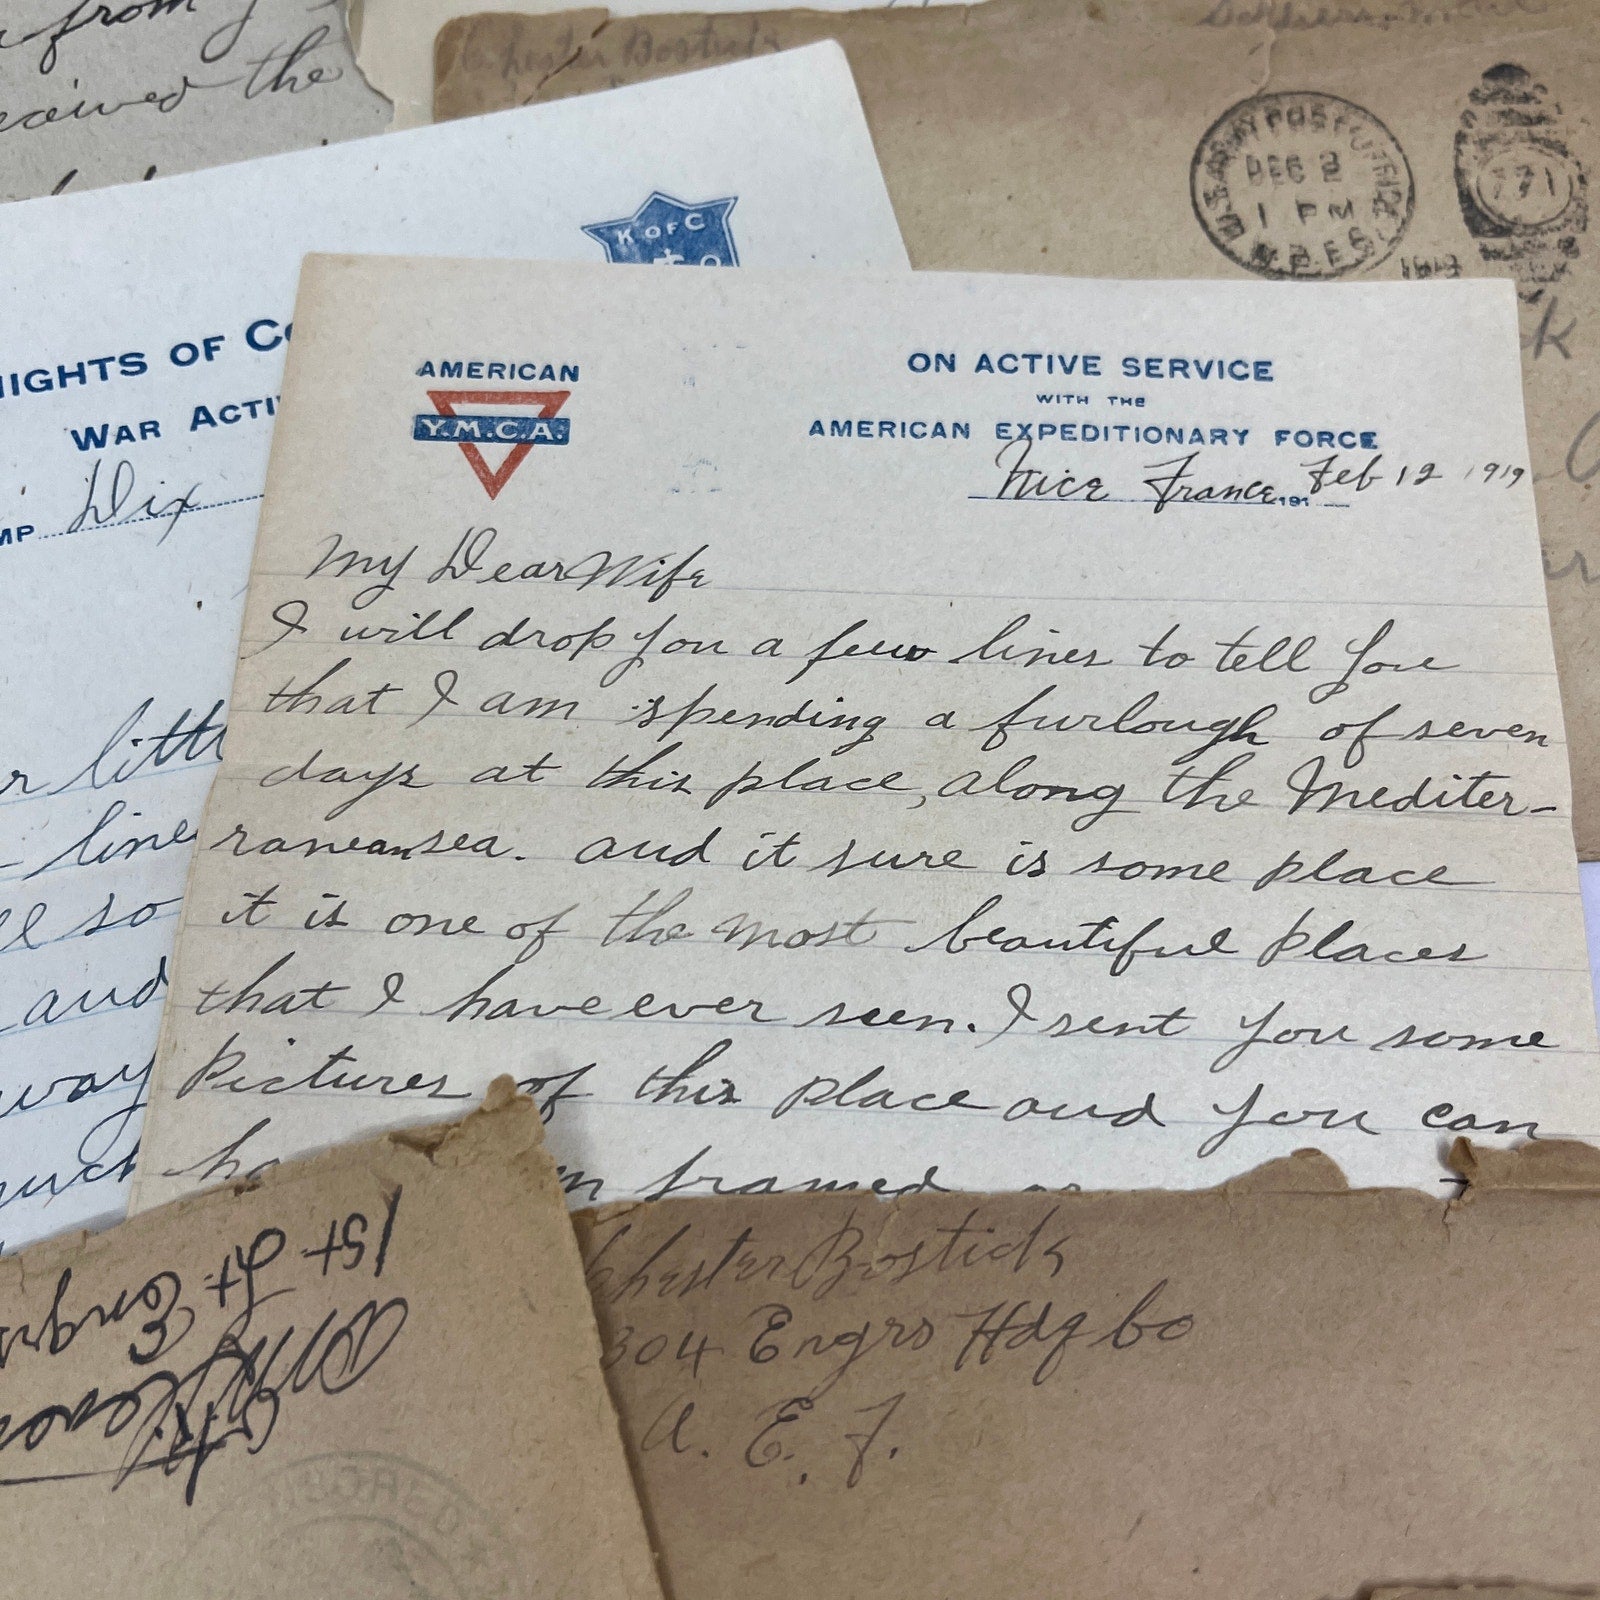 from
eceived the
Chester Bostick
Soldiers Mail
U.S. ARMY POST OFFICE
DEC 2
1 PM
M.P.E.S.
771
K OF C
NIGHTS OF CO
WAR ACTI
MP Dix
r little
line
so
and
way
AMERICAN
Y.M.C.A.
ON ACTIVE SERVICE
WITH THE
AMERICAN EXPEDITIONARY FORCE
Nice France, 191 Feb 12 1919
My Dear Wife
I will drop you a few lines to tell you
that I am spending a furlough of seven
days at this place, along the Mediter-
ranean sea. and it sure is some place
it is one of the most beautiful places
that I have ever seen. I sent you some
Pictures of this place and you can
framed
Chester Bostick
304 Engrs Hdq Co
A. E. F.
1st Lt Engrs